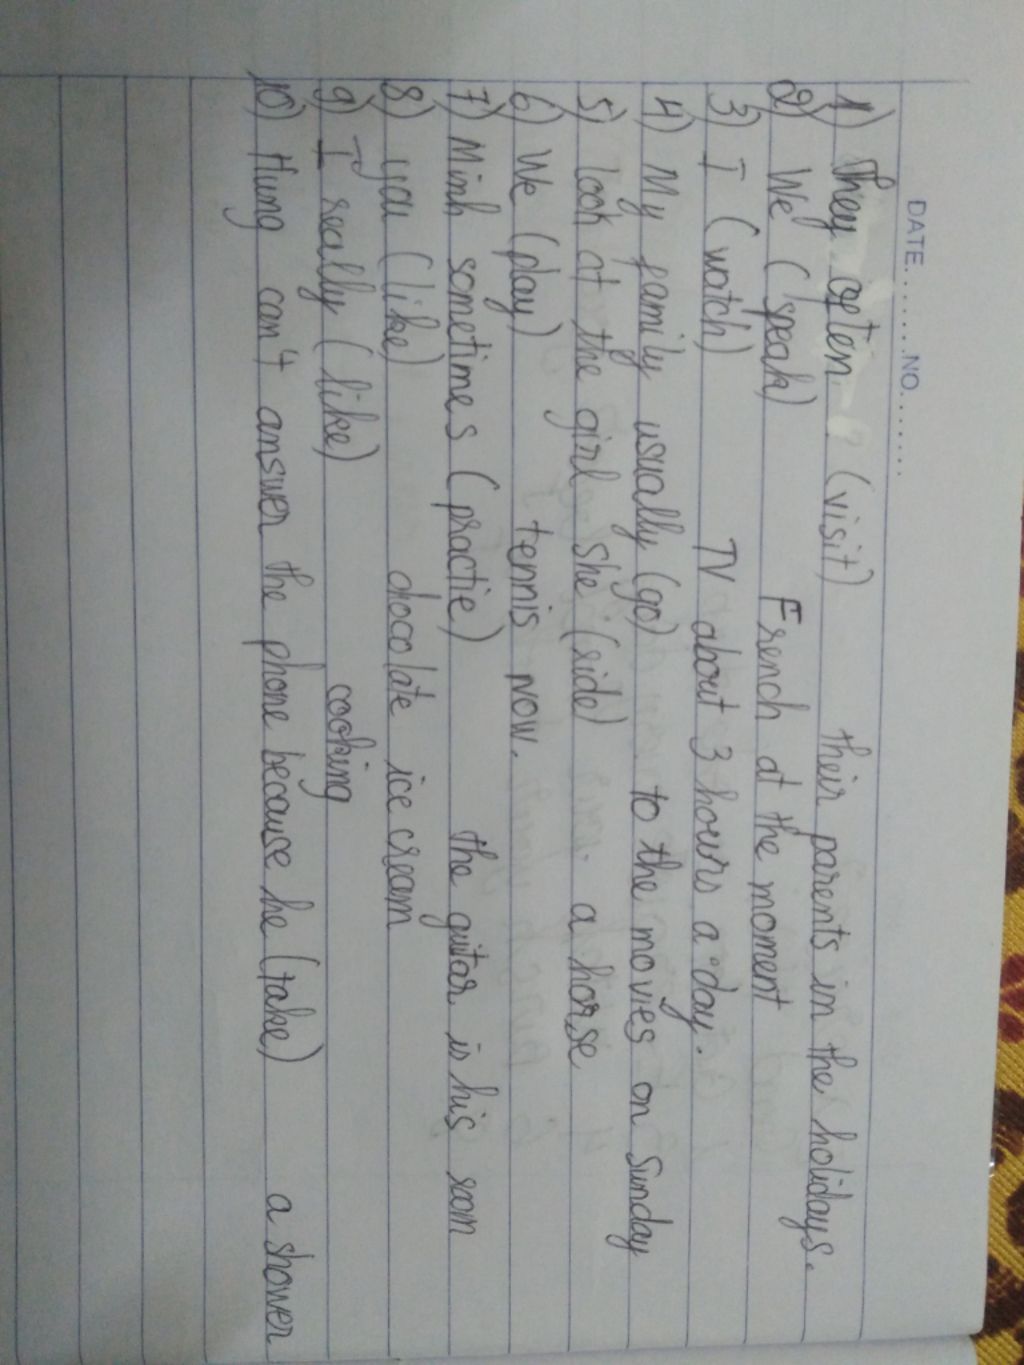 DATE.......NO.......
1) They often (visit) their parents in the holidays.
2) We (speak) French at the moment
3) I (watch) TV about 3 hours a day.
4) My family usually (go) to the movies on Sunday
5) look at the girl she (ride) a horse
6) We (play) tennis now.
7) Minh sometimes (practie) the guitar is his room
8) you (like) chocolate ice cream
9) I really (like) cooking
10) Hung can't answer the phone because he (take) a shower